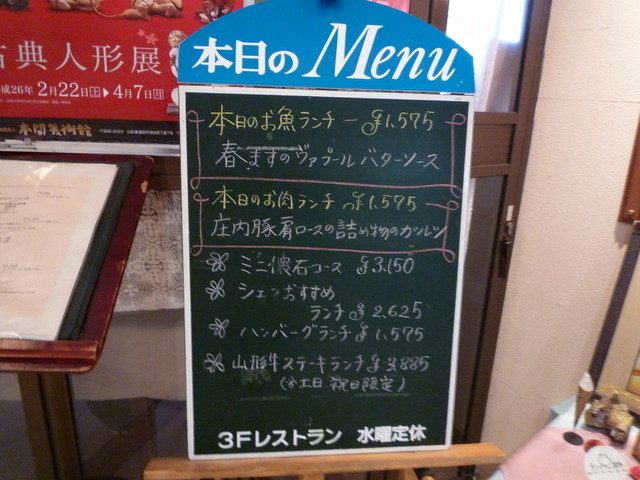 古典人形展
平成26年 2月22日土▶4月7日月
本間美術館
本日の Menu
本日のお魚ランチ ー ¥1,575
春ますのヴァプール バターソース
本日のお肉ランチ ¥1,575
庄内豚肩ロースの詰め物のガランツ
ミニ懐石コース ¥3,150
シェフおすすめ
ランチ ¥2,625
ハンバーグランチ ¥1,575
山形牛ステーキランチ ¥3,885
(※土日、祝日限定)
3Fレストラン 水曜定休